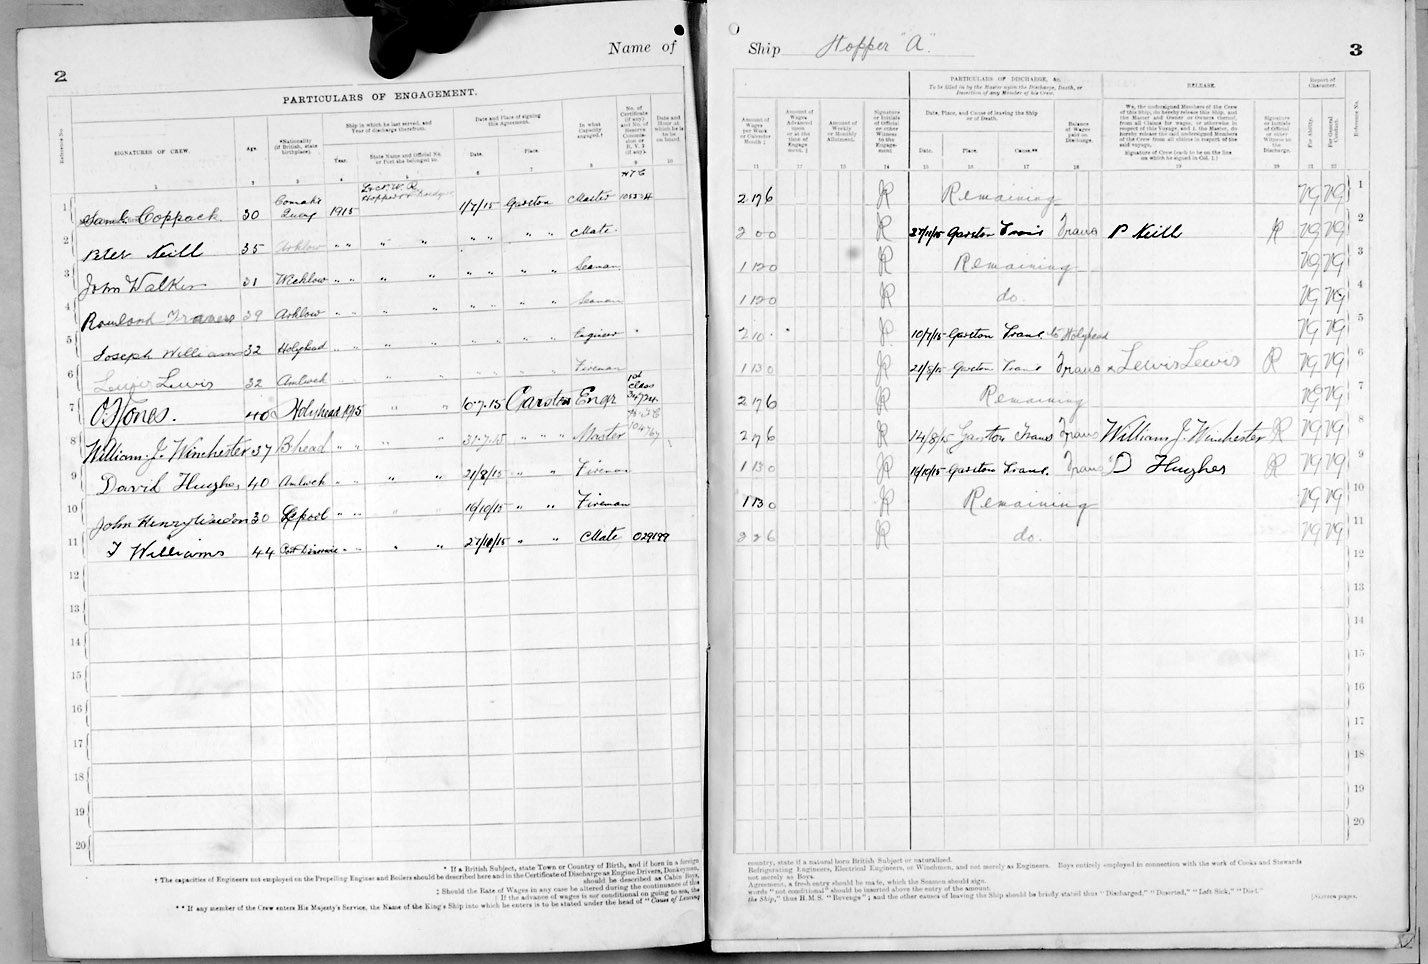 2
Name of
PARTICULARS OF ENGAGEMENT.
Reference No.
SIGNATURES OF CREW.
Age.
*Nationality
(if British, state
birthplace).
Ship in which he last served, and
Year of discharge therefrom.
Year.
State Name and Official No.
or Port she belonged to.
Date and Place of signing
this Agreement.
Date.
Place.
In what
Capacity
engaged.†
No. of
Certificate
(if any)
Date and
Hour at
which he is
to be
on board.
1 2 3 4 5 6 7 8 9 10
1 Saml. Coppack 30 Connah's Quay 1915 L. & N. W. R. Hopper 1/7/15 Garston Master
2 Peter Neill 35 Arklow " " " " " " " " Mate
3 John Walker 31 Wicklow " " " " " " " " Seaman
4 Rowland 39 Arklow " " " " " " " " Seaman
5 Joseph Williams 32 Holyhead " " " " " " " " Engineer
6 Lewis Lewis 32 Amlwch " " " " " " " " Fireman
7 O. Jones. 40 Holyhead 1915 " " 10.7.15 Garston Engr 1st Class 34724
8 William. J. Winchester 37 B'head " " " " 31.7.15 " " " Master
9 David Hughes 40 Amlwch " " " " 21/8/15 " " Fireman
10 John Henry 30 L'pool " " " " 16/10/15 " " Fireman
11 T Williams 44 Port Dinorwic " " " " 27/10/15 " " Mate 029199
12
13
14
15
16
17
18
19
20
* If a British Subject, state Town or Country of Birth, and if born in a foreign
† The capacities of Engineers not employed on the Propelling Engines and Boilers should be described here and in the Certificate of Discharge as Engine Drivers, Donkeymen,
should be described as Cabin Boys,
‡ Should the Rate of Wages in any case be altered during the continuance of this
If the advance of wages is not conditional on going to sea, the
** If any member of the Crew enters His Majesty's Service, the Name of the King's Ship into which he enters is to be stated under the head of "Cause of Leaving
Ship Hopper "A".
3
PARTICULARS OF DISCHARGE, &c.
To be filled in by the Master upon the Discharge, Death, or
Desertion of any Member of his Crew.
RELEASE.
Report of
Character.
Amount of
Wages
per Week
or Calendar
Month
Amount of
Wages
Advanced
upon
or at the
time of
Engage-
ment.
Amount of
Weekly
or Monthly
Allotment.
Signature
or Initials
of Official
or other
Witness
to the
Engage-
ment.
Date, Place, and Cause of leaving this Ship
or of Death.
Date.
Place.
Cause.**
Balance
of Wages
paid on
Discharge.
We, the undersigned Members of the Crew
of this Ship, do hereby release this Ship, and
the Master and Owner or Owners thereof,
from all Claims for wages, or otherwise in
respect of this Voyage, and I, the Master, do
hereby release the said undersigned Members
of the Crew from all claims in respect of the
said voyage.
Signature of Crew (each to be on the line
on which he signed in Col. 1.)
Signature
or Initials
of Official
or other
Witness to
the
Discharge.
For Ability.
For General Conduct.
Reference No.
11 12 13 14 15 16 17 18 19 20 21 22
2 17 6 Remaining VG VG 1
2 0 0 27/11/15 Garston Trans P Neill VG VG 2
1 12 0 Remaining VG VG 3
1 12 0 do. VG VG 4
2 10 10/7/15 Garston Trans. to Holyhead VG VG 5
1 13 0 21/8/15 Garston Trans Trans Lewis Lewis VG VG 6
2 17 6 Remaining VG VG 7
2 17 6 14/8/15 Garston Trans Trans William J. Winchester VG VG 8
1 13 0 16/10/15 Garston Trans. Trans D Hughes VG VG 9
1 13 0 Remaining VG VG 10
2 2 6 do. VG VG 11
12
13
14
15
16
17
18
19
20
country, state if a natural born British Subject or naturalised.
Refrigerating Engineers, Electrical Engineers, or Winchmen, and not merely as Engineers. Boys entirely employed in connection with the work of Cooks and Stewards
not merely as Boys.
Agreement, a fresh entry should be made, which the Seamen should sign.
words "not conditional" should be inserted above the entry of the amount.
the Ship," thus H.M.S. "Revenge"; and the other causes of leaving the Ship should be briefly stated thus "Discharged," "Deserted," "Left Sick," "Died."
[Sixteen pages.